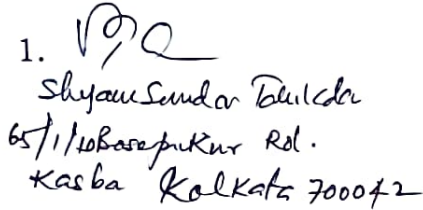 1.
Shyam Sundar Talukdar
65/1/10 Bosepukur Rd.
Kasba Kolkata 700042